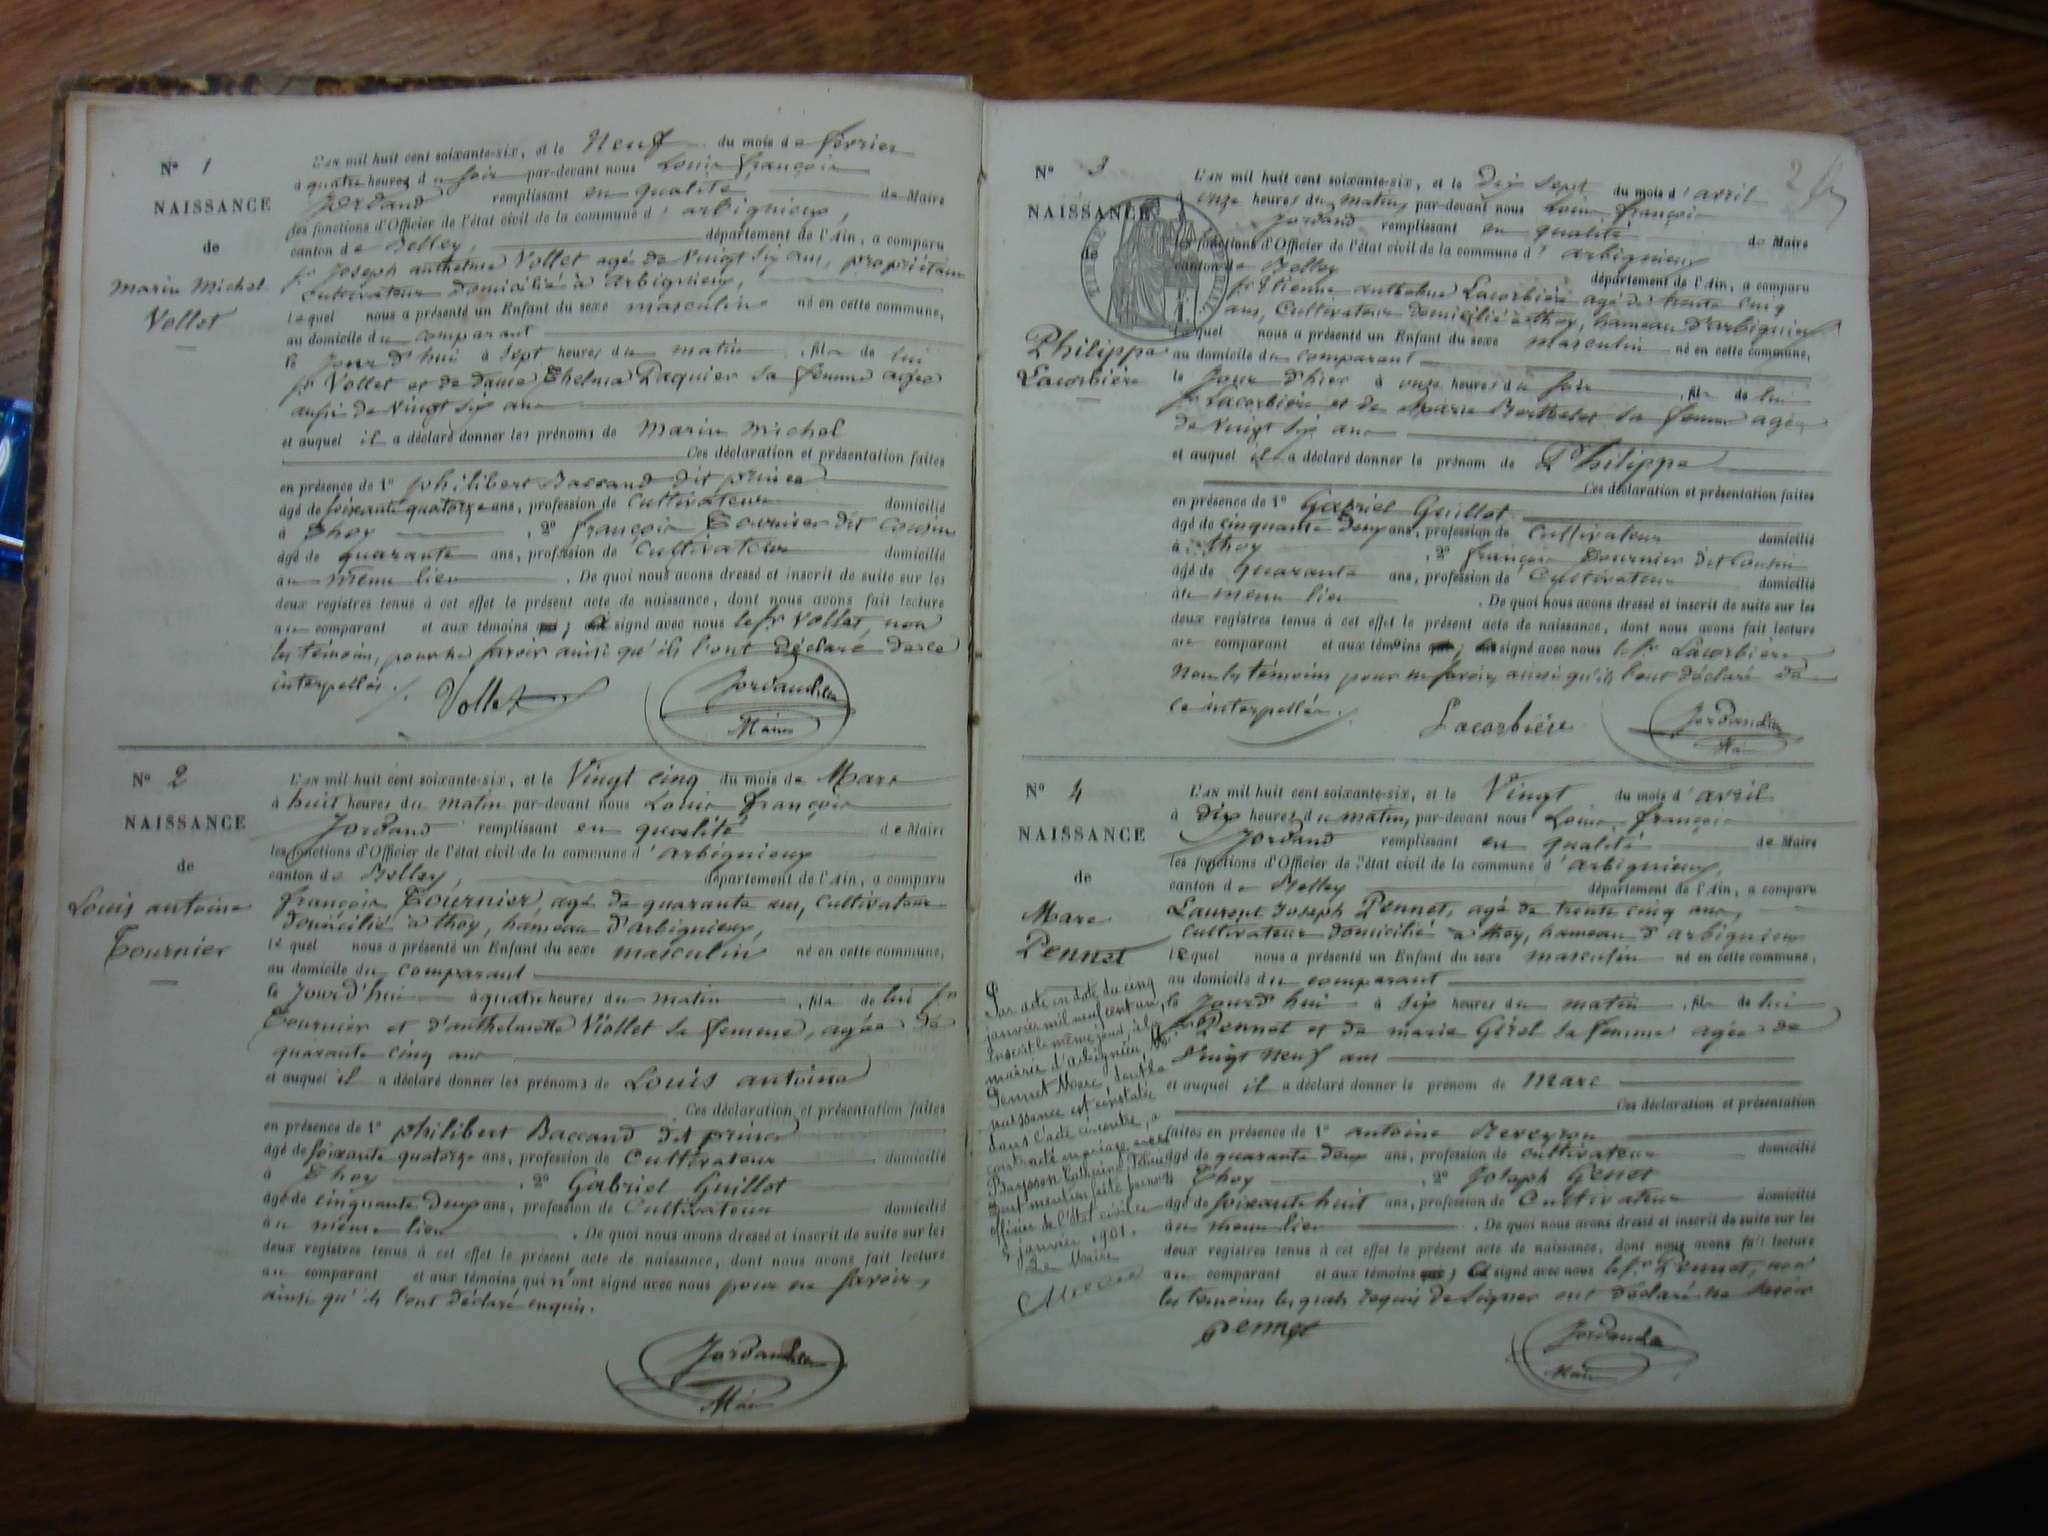 N° 1
NAISSANCE
de
Marin Michel
Vollet
L'an mil huit cent soixante-six, et le Neuf du mois de février
à quatre heures du soir par-devant nous Louis françois
Jordand remplissant en qualité de Maire
les fonctions d'Officier de l'état civil de la commune d'arbignieux,
canton de Belley, département de l'Ain, a comparu
sr Joseph anthelme Vollet agé de Vingt six ans, propriétaire
Cultivateur domicilié à arbignieux,
lequel nous a présenté un Enfant du sexe masculin né en cette commune,
au domicile du comparant
le Jour d'hui à sept heures du matin, fils de lui
sr Vollet et de dame Thelma Paquier sa femme agée
aussi de Vingt six ans
et auquel il a déclaré donner les prénoms de Marin Michel
Ces déclaration et présentation faites
en présence de 1° philibert Baccand dit prince
âgé de soixante quatorze ans, profession de Cultivateur domicilié
à Thoy, 2° françois Tournier dit Cousin
âgé de quarante ans, profession de Cultivateur domicilié
au même lieu. De quoi nous avons dressé et inscrit de suite sur les
deux registres tenus à cet effet le présent acte de naissance, dont nous avons fait lecture
au comparant et aux témoins ; signé avec nous le sr Vollet, non
les témoins, pour ne savoir ainsi qu'ils l'ont déclaré de ce
interpellés.
Vollet Jordand
Maire
N° 2
NAISSANCE
de
Louis antoine
Tournier
L'an mil huit cent soixante-six, et le Vingt cinq du mois de Mars
à huit heures du matin par-devant nous Louis françois
Jordand remplissant en qualité de Maire
les fonctions d'Officier de l'état civil de la commune d'arbignieux
canton de Belley, département de l'Ain, a comparu
françois Tournier, agé de quarante ans, Cultivateur
domicilié à thoy, hameau d'arbignieux,
lequel nous a présenté un Enfant du sexe masculin né en cette commune,
au domicile du comparant
le Jour d'hui à quatre heures du matin, fils de lui sr
Tournier et d'anthelmette Viollet sa femme, agée de
quarante cinq ans
et auquel il a déclaré donner les prénoms de Louis antoine
Ces déclaration et présentation faites
en présence de 1° philibert Baccand dit prince
âgé de soixante quatorze ans, profession de Cultivateur domicilié
à Thoy, 2° Gabriel Guillot
âgé de cinquante deux ans, profession de Cultivateur domicilié
au même lieu. De quoi nous avons dressé et inscrit de suite sur les
deux registres tenus à cet effet le présent acte de naissance, dont nous avons fait lecture
au comparant et aux témoins qui n'ont signé avec nous pour ne savoir,
ainsi qu'ils l'ont déclaré enquis.
Jordand
Maire
2
N° 3
NAISSANCE
de
Philippe
Lacorbière
L'an mil huit cent soixante-six, et le dix sept du mois d'avril
à onze heures du matin, par-devant nous Louis françois
Jordand remplissant en qualité de Maire
les fonctions d'Officier de l'état civil de la commune d'arbignieux
canton de Belley département de l'Ain, a comparu
sr Etienne anthelme Lacorbière agé de trente cinq
ans, Cultivateur domicilié à thoy, hameau d'arbignieux
lequel nous a présenté un Enfant du sexe masculin né en cette commune,
au domicile du comparant
le Jour d'hier à onze heures du soir, fils de lui
sr Lacorbière et de Marie Berthelet sa femme agée
de Vingt six ans
et auquel il a déclaré donner le prénom de Philippe
Ces déclaration et présentation faites
en présence de 1° Gabriel Guillot
âgé de cinquante deux ans, profession de Cultivateur domicilié
à thoy, 2° françois Tournier dit Cousin
âgé de Quarante ans, profession de Cultivateur domicilié
au même lieu. De quoi nous avons dressé et inscrit de suite sur les
deux registres tenus à cet effet le présent acte de naissance, dont nous avons fait lecture
au comparant et aux témoins ; signé avec nous le sr Lacorbière
Non les témoins pour ne savoir ainsi qu'ils l'ont déclaré de
ce interpellés.
Lacorbière Jordand
N° 4
NAISSANCE
de
Marc
Pennet
Par acte en date du cinq
janvier mil neuf cent un,
inscrit le même jour à la
mairie d'arbignieu,
Pennet Marc dont la
naissance est constatée
dans l'acte ci-contre, a
contracté mariage avec
Catherine
Dont mention faite par nous
officier de l'état civil le
5 janvier 1901.
Le Maire
L'an mil huit cent soixante-six, et le Vingt du mois d'avril
à dix heures du matin, par-devant nous Louis françois
Jordand remplissant en qualité de Maire
les fonctions d'Officier de l'état civil de la commune d'arbignieux,
canton de Belley département de l'Ain, a comparu
Laurent Joseph Pennet, agé de trente cinq ans,
Cultivateur domicilié à thoy, hameau d'arbignieux
lequel nous a présenté un Enfant du sexe masculin né en cette commune,
au domicile du comparant
le Jour d'hui à six heures du matin, fils de lui
sr Pennet et de marie Gérel sa femme agée de
Vingt neuf ans
et auquel il a déclaré donner le prénom de Marc
Ces déclaration et présentation
faites en présence de 1° antoine Reveyron
âgé de quarante deux ans, profession de cultivateur domicilié
à Thoy, 2° Joseph Genet
âgé de soixante huit ans, profession de Cultivateur domicilié
au même lieu. De quoi nous avons dressé et inscrit de suite sur les
deux registres tenus à cet effet le présent acte de naissance, dont nous avons fait lecture
au comparant et aux témoins ; signé avec nous le sr Pennet, non
les témoins lesquels requis de signer ont déclaré ne savoir
pennet Jordand
Maire